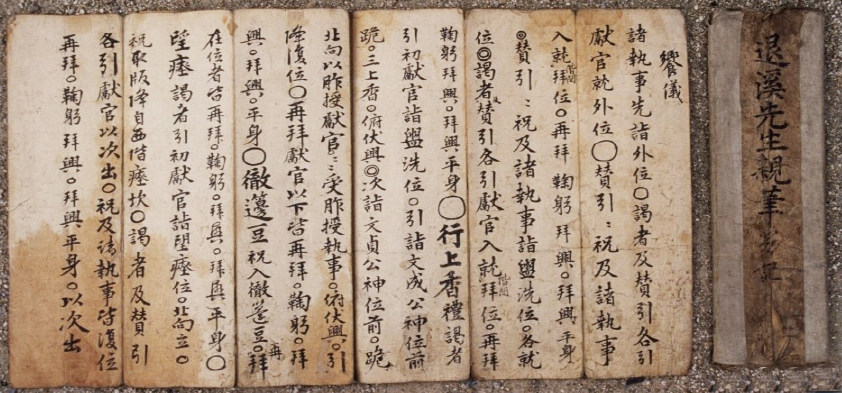 退溪先生親筆 笏記
饗儀
諸執事先詣外位〇謁者及賛引各引
獻官就外位〇賛引〻祝及諸執事
入就階間拜位〇再拜 鞠躬 拜興〇拜興平身
◎賛引〻祝及諸執事詣盥洗位〇各就
位◎謁者及賛引各引獻官入就階間拜位〇再拜
鞠躬拜興〇拜興平身〇行上香禮謁者
引初獻官詣盥洗位〇引詣文成公神位前
跪〇三上香〇俯伏興◎次詣文貞公神位前〇跪
北向以胙授獻官〻受胙授執事〇俯伏興〇引
降復位〇再拜獻官以下皆再拜〇鞠躬〇拜
興〇拜興〇平身〇徹籩豆祝入徹籩豆〇再拜
在位者皆再拜〇鞠躬〇拜興〇拜興平身〇
望瘞謁者引初獻官詣望瘞位〇北向立〇
祝取版降自西階瘞坎〇謁者及賛引
各引獻官以次出〇祝及諸執事皆復位
再拜〇鞠躬 拜興〇拜興平身〇以次出